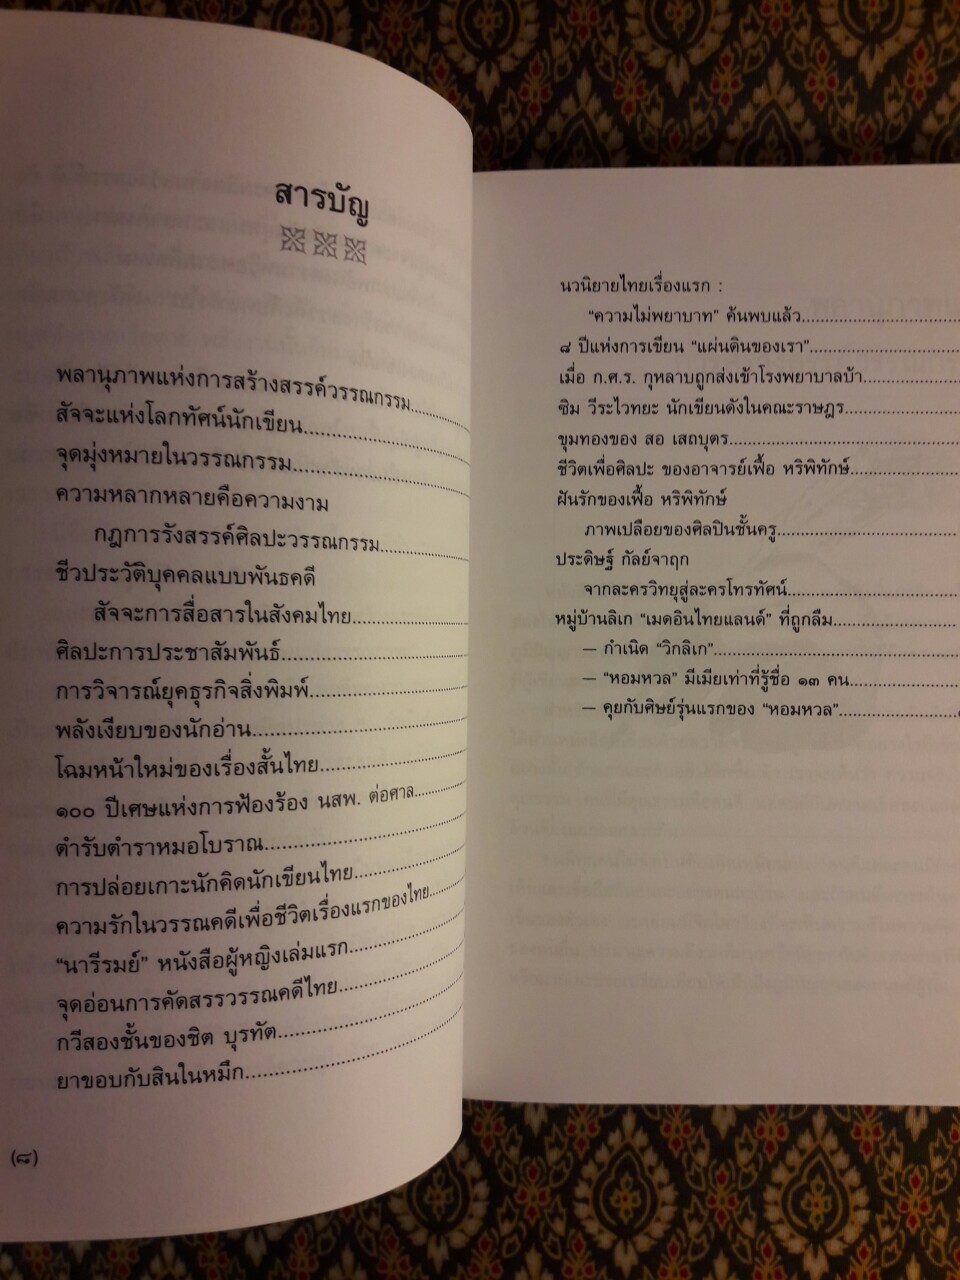 สารบัญ
พลานุภาพแห่งการสร้างสรรค์วรรณกรรม
สัจจะแห่งโลกทัศน์นักเขียน
จุดมุ่งหมายในวรรณกรรม
ความหลากหลายคือความงาม
กฎการรังสรรค์ศิลปะวรรณกรรม
ชีวประวัติบุคคลแบบพันธคดี
สัจจะการสื่อสารในสังคมไทย
ศิลปะการประชาสัมพันธ์
การวิจารณ์ยุคธุรกิจสิ่งพิมพ์
พลังเงียบของนักอ่าน
โฉมหน้าใหม่ของเรื่องสั้นไทย
๑๐๐ ปีเศษแห่งการฟ้องร้อง นสพ. ต่อศาล
ตำรับตำราหมอโบราณ
การปล่อยเกาะนักคิดนักเขียนไทย
ความรักในวรรณคดีเพื่อชีวิตเรื่องแรกของไทย
“นารีรมย์” หนังสือผู้หญิงเล่มแรก
จุดอ่อนการคัดสรรวรรณคดีไทย
กวีสองชั้นของชิต บุรทัต
ยาขอบกับสินในหมึก
(๘)
นวนิยายไทยเรื่องแรก :
“ความไม่พยาบาท” ค้นพบแล้ว
๘ ปีแห่งการเขียน “แผ่นดินของเรา”
เมื่อ ก.ศ.ร. กุหลาบถูกส่งเข้าโรงพยาบาลบ้า
ซิม วีระไวทยะ นักเขียนดังในคณะราษฎร
ขุมทองของ สอ เสถบุตร
ชีวิตเพื่อศิลปะ ของอาจารย์เฟื้อ หริพิทักษ์
ฝันรักของเฟื้อ หริพิทักษ์
ภาพเปลือยของศิลปินชั้นครู
ประดิษฐ์ กัลย์จาฤก
จากละครวิทยุสู่ละครโทรทัศน์
หมู่บ้านลิเก “เมดอินไทยแลนด์” ที่ถูกลืม
— กำเนิด “วิกลิเก”
— “หอมหวล” มีเมียเท่าที่รู้ชื่อ ๑๓ คน
— คุยกับศิษย์รุ่นแรกของ “หอมหวล”